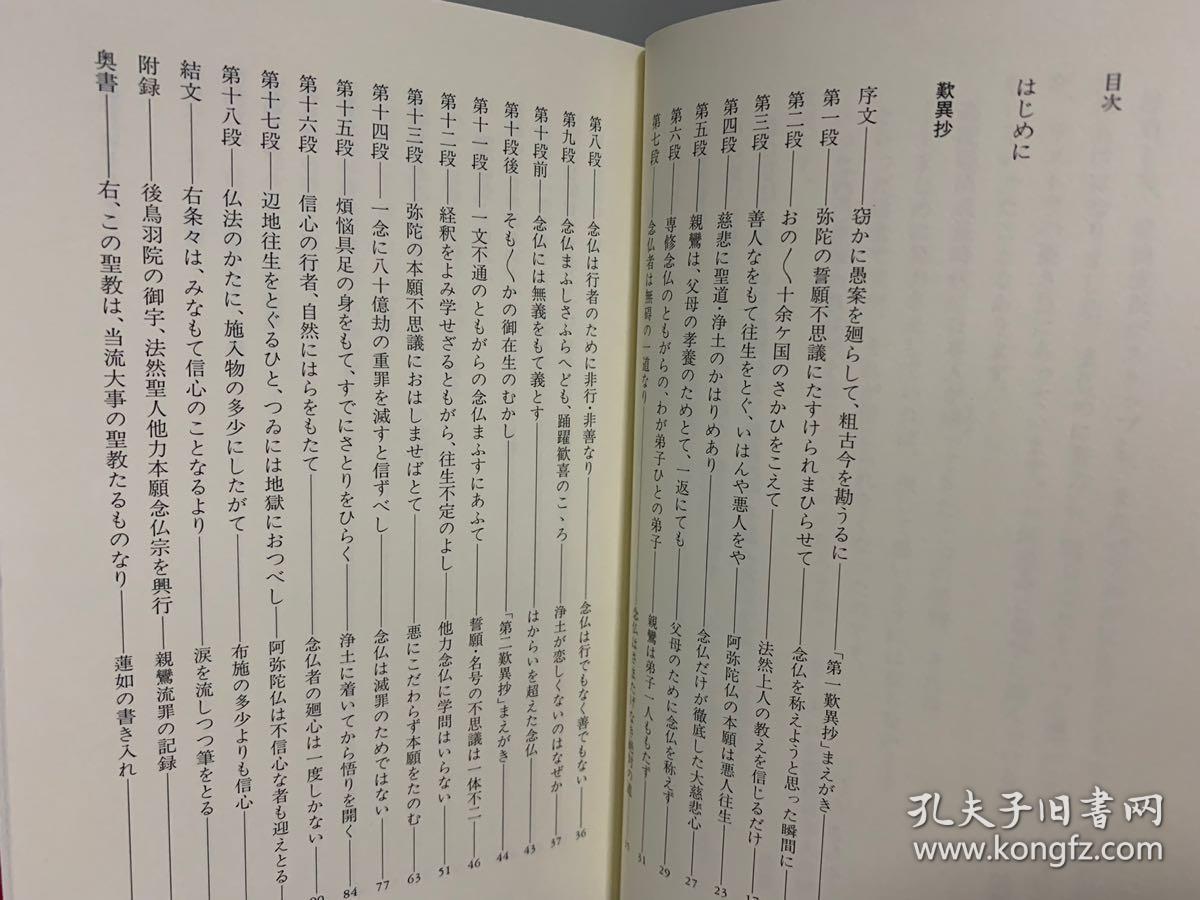 目次
はじめに
歎異抄
序文――窃かに愚案を廻らして、粗古今を勘うるに――「第一歎異抄」まえがき
第一段――弥陀の誓願不思議にたすけられまひらせて――念仏を称えようと思った瞬間に
第二段――おの〳〵十余ケ国のさかひをこえて――法然上人の教えを信じるだけ 17
第三段――善人なをもて往生をとぐ、いはんや悪人をや――阿弥陀仏の本願は悪人往生 23
第四段――慈悲に聖道・浄土のかはりめあり――念仏だけが徹底した大慈悲心 27
第五段――親鸞は、父母の孝養のためとて、一返にても――父母のために念仏を称えず 29
第六段――専修念仏のともがらの、わが弟子ひとの弟子――親鸞は弟子一人ももたず 31
第七段――念仏者は無碍の一道なり――念仏はさまたげなき
第八段――念仏は行者のために非行・非善なり――念仏は行でもなく善でもない 36
第九段――念仏まふしさふらへども、踊躍歓喜のこゝろ――浄土が恋しくないのはなぜか 37
第十段前――念仏には無義をもて義とす――はからいを超えた念仏 43
第十段後――そも〳〵かの御在生のむかし――「第二歎異抄」まえがき 44
第十一段――一文不通のともがらの念仏まふすにあふて――誓願・名号の不思議は一体不二 46
第十二段――経釈をよみ学せざるともがら、往生不定のよし――他力念仏に学問はいらない 51
第十三段――弥陀の本願不思議におはしませばとて――悪にこだわらず本願をたのむ 63
第十四段――一念に八十億劫の重罪を滅すと信ずべし――念仏は滅罪のためではない 77
第十五段――煩悩具足の身をもて、すでにさとりをひらく――浄土に着いてから悟りを開く 84
第十六段――信心の行者、自然にはらをもたて――念仏者の廻心は一度しかない
第十七段――辺地往生をとぐるひと、つゐには地獄におつべし――阿弥陀仏は不信心な者も迎えとる
第十八段――仏法のかたに、施入物の多少にしたがて――布施の多少よりも信心
結文――右条々は、みなもて信心のことなるより――涙を流しつつ筆をとる
附録――後鳥羽院の御宇、法然聖人他力本願念仏宗を興行――親鸞流罪の記録
奥書――右、この聖教は、当流大事の聖教たるものなり――蓮如の書き入れ
孔夫子旧书网
www.kongfz.com